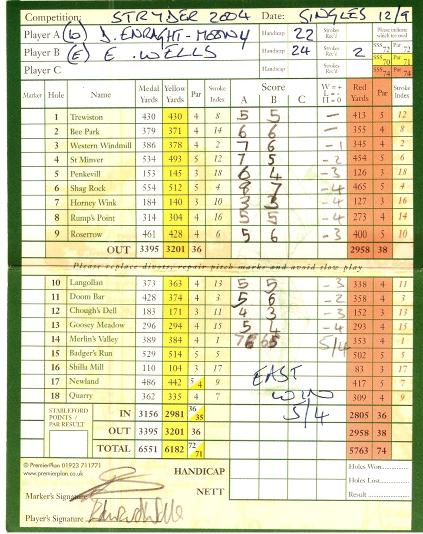 Competition: STRYDER 2004 Date: SINGLES 12/9
Player A (W) D. ENRAGHT-MOONY Handicap 22 Strokes Rec'd Please indicate which tee used
Player B (E) E. WELLS Handicap 24 Strokes Rec'd 2 SSS 72 Par 72
SSS 70 Par 71
Player C Handicap Strokes Rec'd SSS 74 Par 74
Marker Hole Name Medal Yards Yellow Yards Par Stroke Index Score A B C W = + L = - H = 0 Red Yards Par Stroke Index
1 Trewiston 430 430 4 8 5 5 — 413 5 12
2 Bee Park 379 371 4 14 6 6 — 355 4 8
3 Western Windmill 386 378 4 2 7 6 -1 345 4 2
4 St Minver 534 493 5 12 7 5 -2 454 5 6
5 Penkevill 153 145 3 18 6 4 -3 126 3 18
6 Shag Rock 554 512 5 4 8 7 -4 465 5 4
7 Horney Wink 184 140 3 10 3 3 -4 127 3 16
8 Rump's Point 314 304 4 16 5 5 -4 273 4 14
9 Roserrow 461 428 4 6 5 6 -3 400 5 10
OUT 3395 3201 36 2958 38
Please replace divots, repair pitch marks and avoid slow play
10 Langollan 373 363 4 13 5 5 -3 338 4 11
11 Doom Bar 428 374 4 3 5 6 -2 358 4 3
12 Chough's Dell 183 171 3 11 4 3 -3 152 3 13
13 Goosey Meadow 296 294 4 15 5 4 -4 293 4 15
14 Merlin's Valley 389 384 4 1 5/4 353 4 1
15 Badger's Run 529 514 5 5 502 5 5
16 Shilla Mill 110 104 3 17 83 3 17
17 Newland 486 442 5 4 9 417 5 7
18 Quarry 362 335 4 7 309 4 9
EAST
WIN
5/4
STABLEFORD POINTS / PAR RESULT
IN 3156 2981 36 35 2805 36
OUT 3395 3201 36 2958 38
TOTAL 6551 6182 72 71 5763 74
© PremierPlan 01923 711771
www.premierplan.co.uk
HANDICAP
NETT
Holes Won
Holes Lost
Result
Marker's Signature
Player's Signature